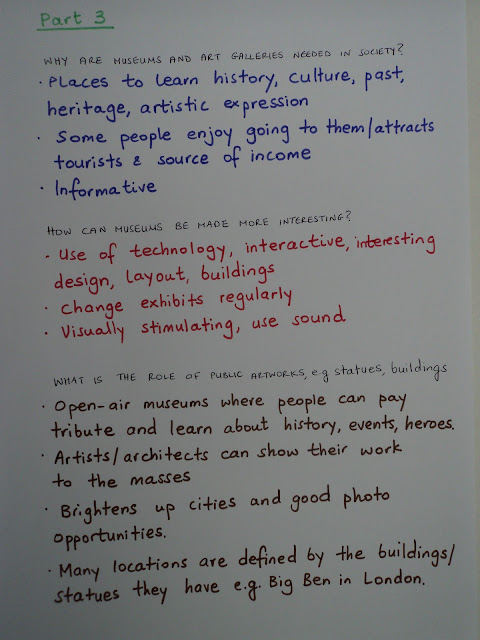 Part 3
WHY ARE MUSEUMS AND ART GALLERIES NEEDED IN SOCIETY?
· Places to learn history, culture, past,
heritage, artistic expression
· Some people enjoy going to them/attracts
tourists & source of income
· Informative
HOW CAN MUSEUMS BE MADE MORE INTERESTING?
· Use of technology, interactive, interesting
design, layout, buildings
· Change exhibits regularly
· Visually stimulating, use sound
WHAT IS THE ROLE OF PUBLIC ARTWORKS, e.g statues, buildings
· Open-air museums where people can pay
tribute and learn about history, events, heroes.
· Artists/architects can show their work
to the masses
· Brightens up cities and good photo
opportunities.
· Many locations are defined by the buildings/
statues they have e.g. Big Ben in London.